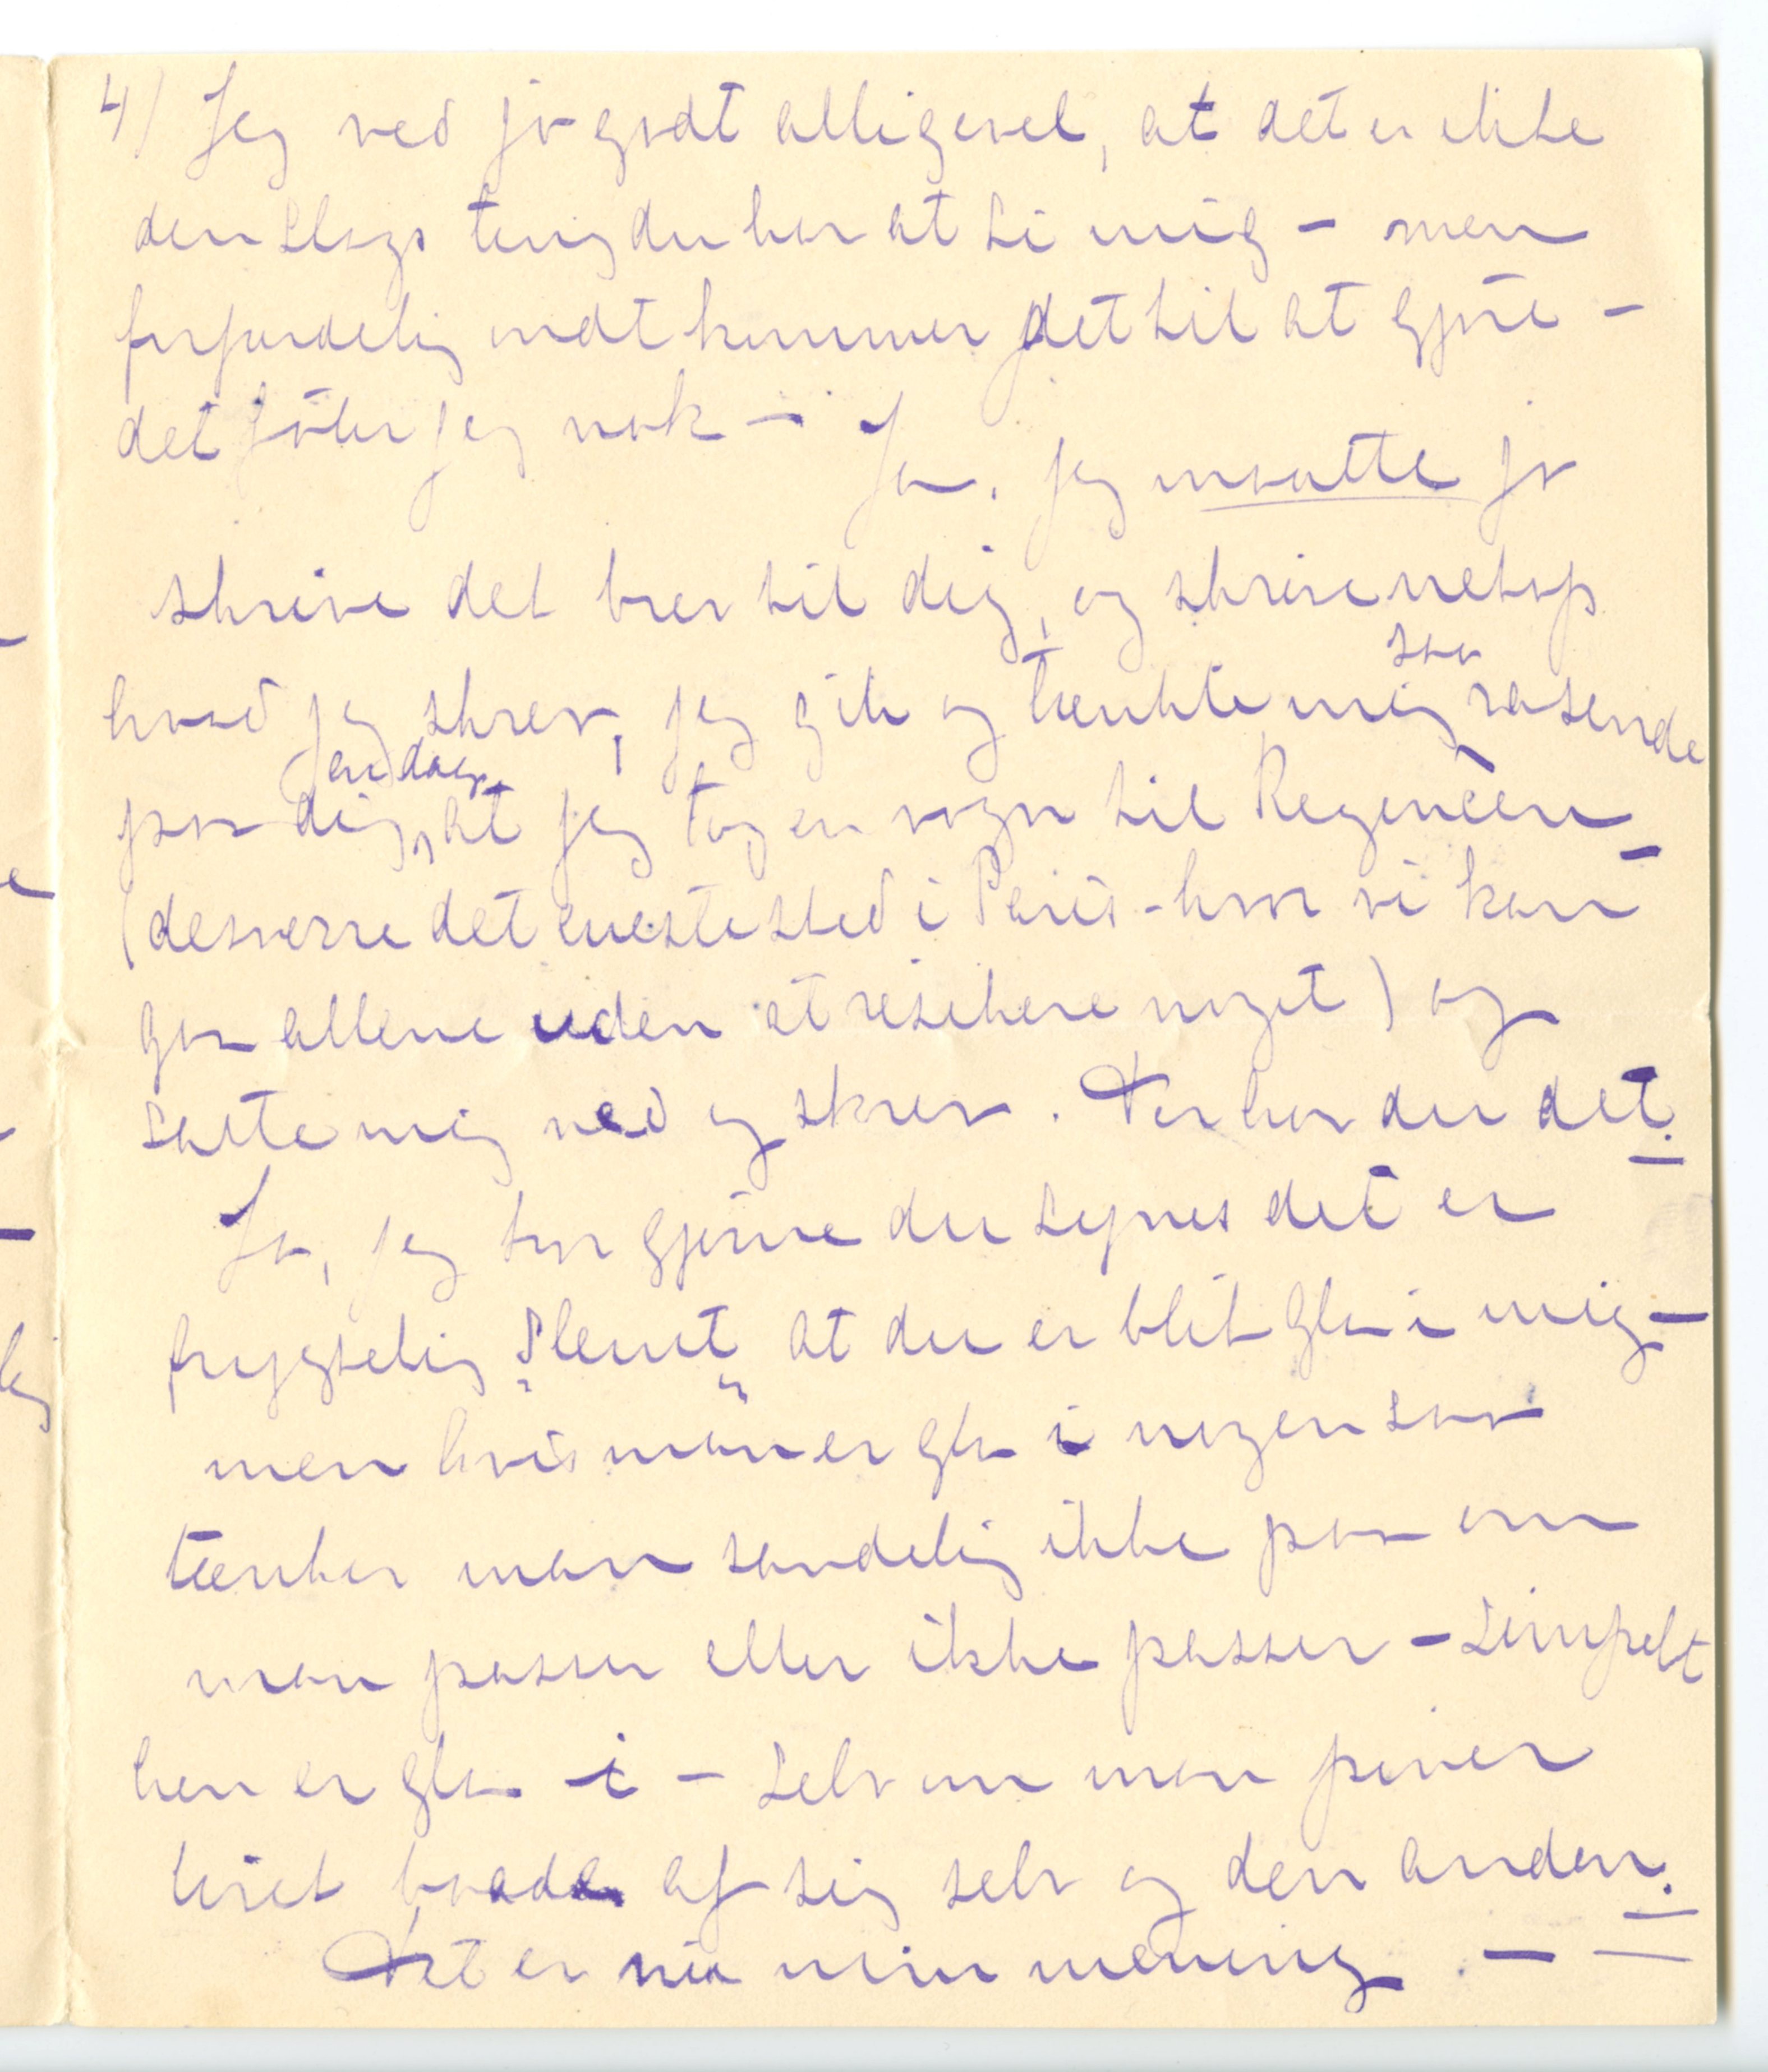 4) Jeg ved jo godt alligevel, at det er ikke
den slags ting du har at si mig – men
forfærdelig ondt kommer det til at gjöre –
det föler jeg nok – Ja, jeg maatte jo
skrive det brev til dig, og skrive netop
hvad jeg skrev, jeg gik og tænkte mig saa rasende
paa dig, en dag, at jeg tog en vogn til Regencen –
(desverre det eneste sted i Paris – hvor vi kan
gaa allene uden at risikere noget) og
satte mig ned og skrev. Der har du det.
Ja, jeg tror gjerne du synes det er
frygtelig „slemt" at du er blit gla i mig –
men hvis man er gla i nogen saa
tænker man sandelig ikke paa om
man passer eller ikke passer – simpelt
hen er gla i – selv om man piner
livet baade af sig selv og den anden.
Det er nu min mening. –